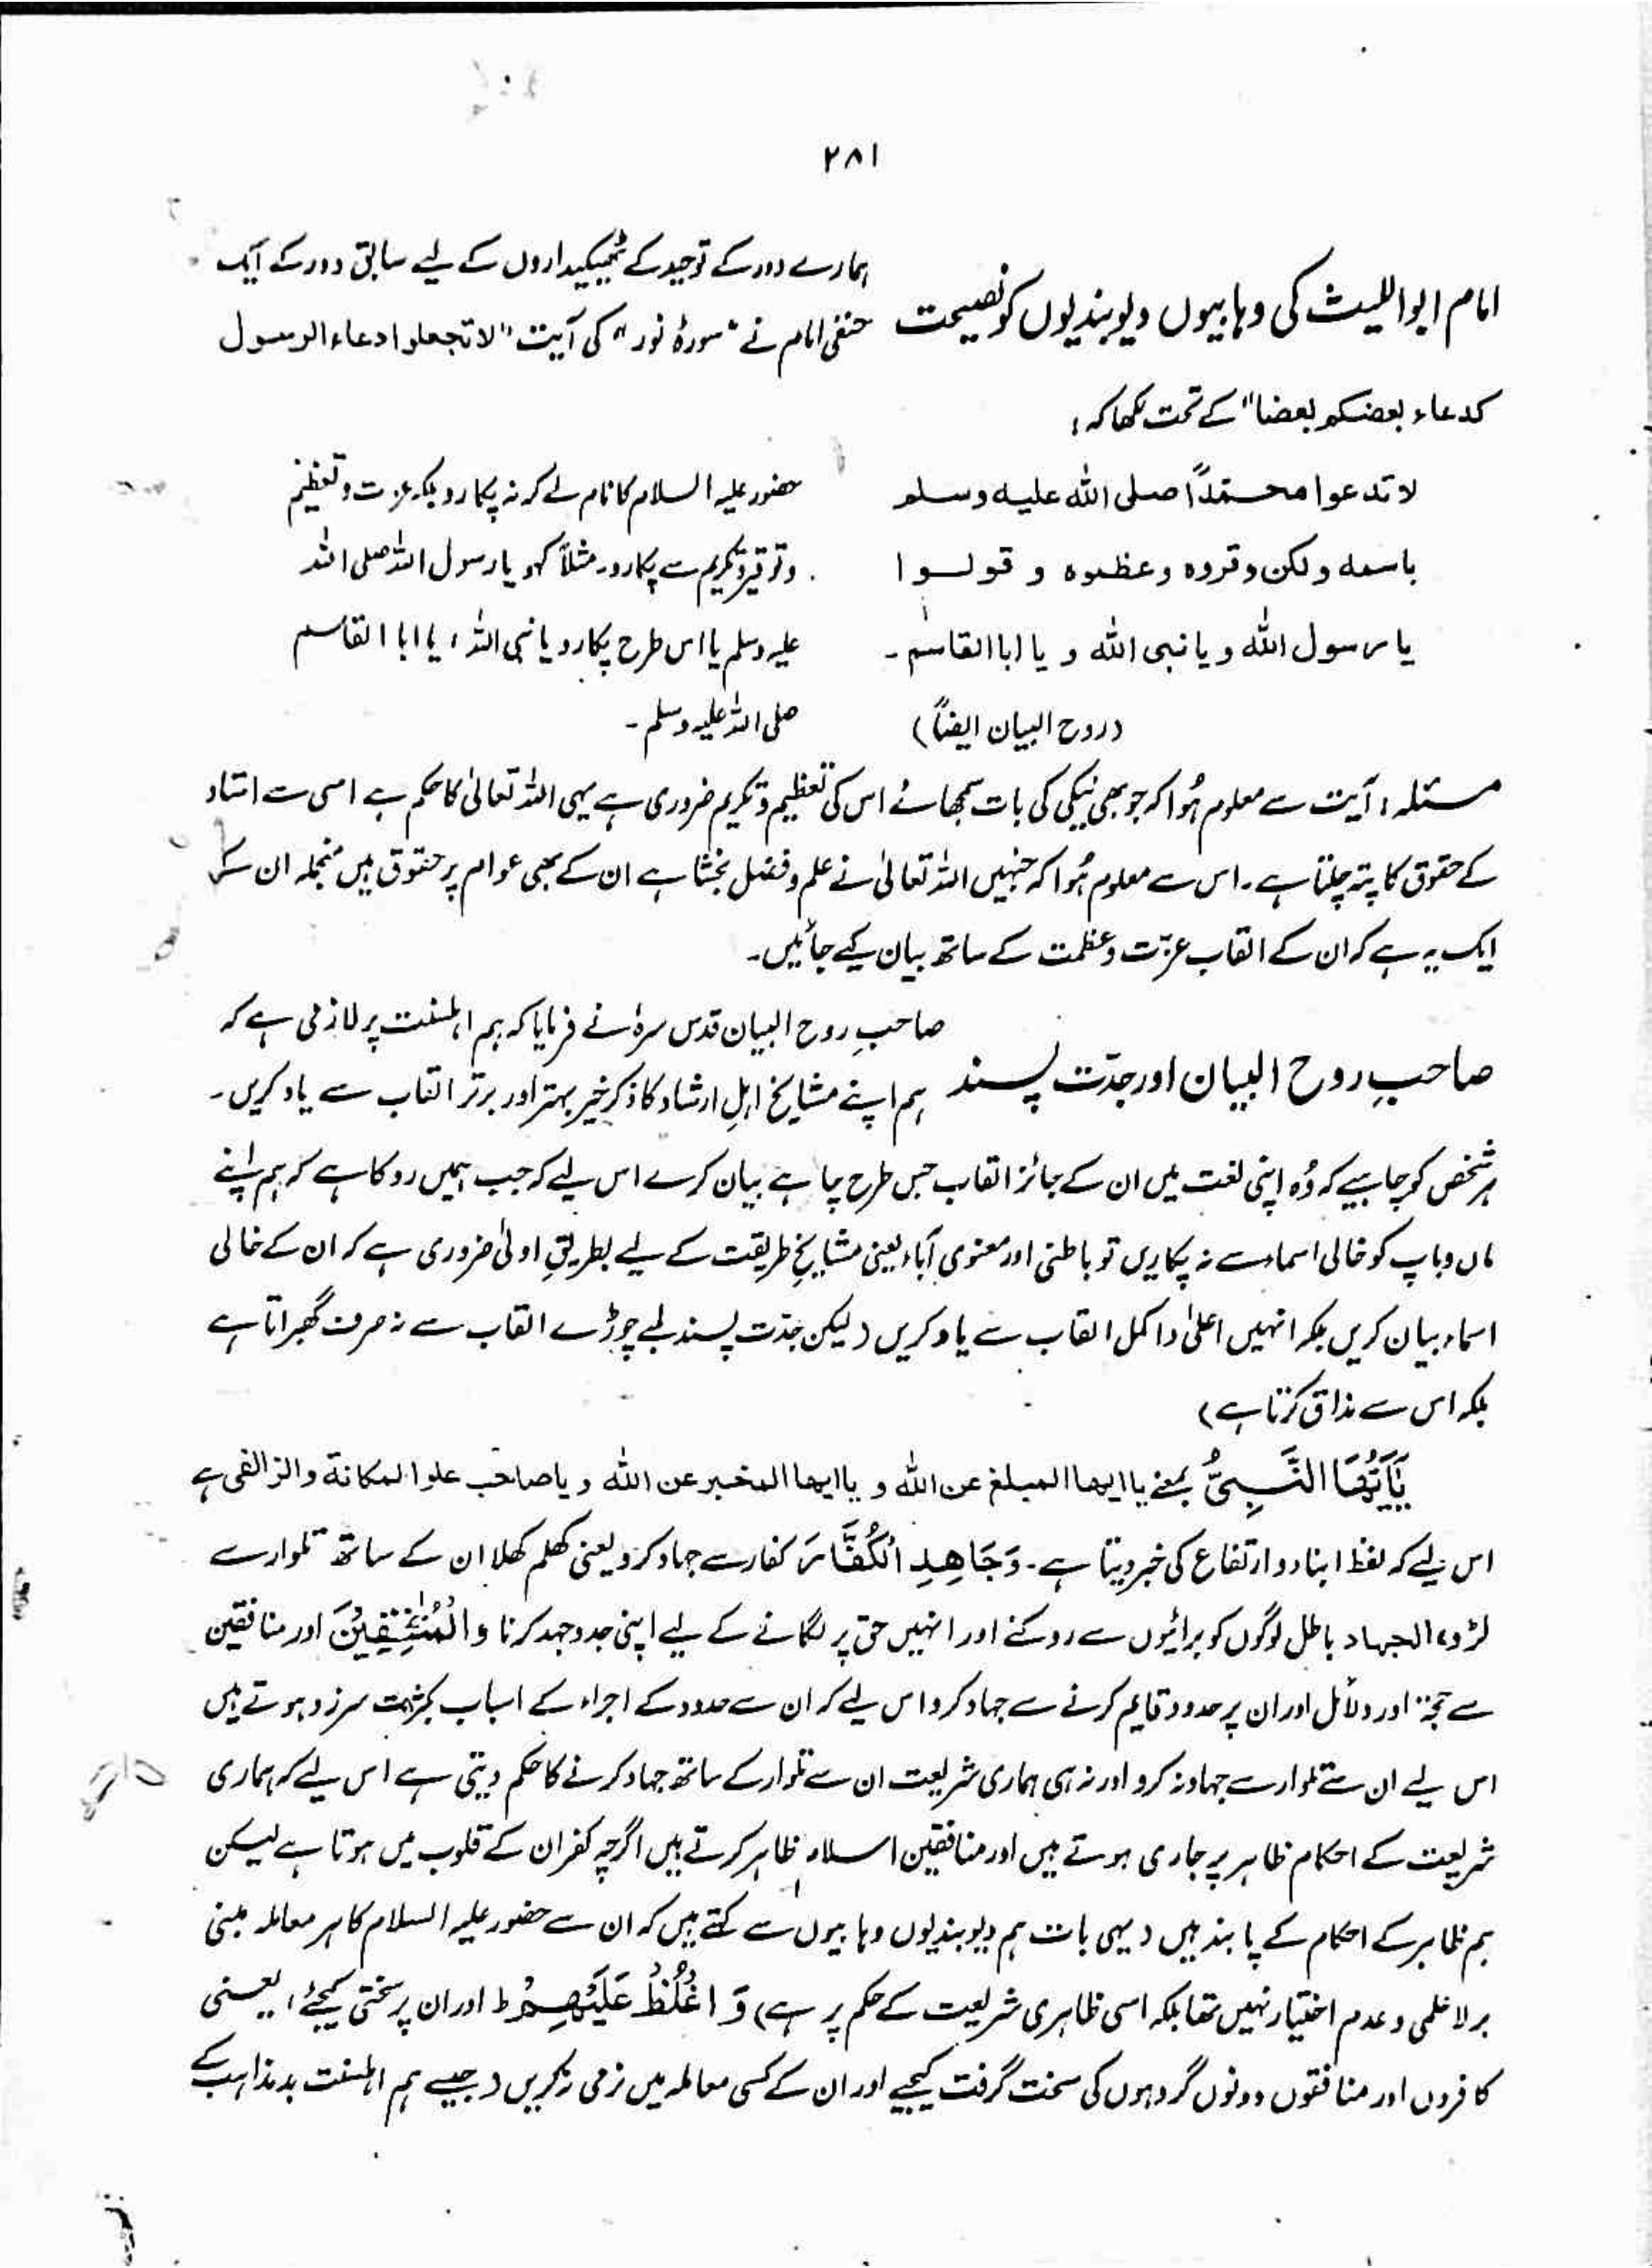 ۲۸۱
امام ابو اللیث کی وہابیوں دیوبندیوں کو نصیحت
ہمارے دور کے توحید کے ٹھیکیداروں کے لیے سابق دور کے ایک
حنفی امام نے "سورۂ نور" کی آیت "لا تجعلوا دعاء الرسول
كدعاء بعضكم بعضا" کے تحت لکھا کہ:
لا تدعوا محمّداً صلى الله عليه وسلم
باسمه ولكن وقروه وعظموه و قولوا
يا رسول الله و يا نبى الله و يا ابا القاسم۔
(روح البیان ایضاً)
حضور علیہ السلام کا نام لے کر نہ پکارو بلکہ عزت و تعظیم
و توقیر و تکریم سے پکارو۔ مثلاً کہو یا رسول اللہ صلی اللہ
علیہ وسلم یا اس طرح پکارو یا نبی اللہ، یا ابا القاسم
صلی اللہ علیہ وسلم۔
مسئلہ: آیت سے معلوم ہُوا کہ جو بھی نیکی کی بات سمجھائے اس کی تعظیم و تکریم ضروری ہے یہی اللہ تعالیٰ کا حکم ہے اسی سے استاد
کے حقوق کا پتہ چلتا ہے۔ اس سے معلوم ہُوا کہ جنہیں اللہ تعالیٰ نے علم و فضل بخشا ہے ان کے بھی عوام پر حقوق ہیں منجملہ ان کے
ایک یہ ہے کہ ان کے القاب عزّت و عظمت کے ساتھ بیان کیے جائیں۔
صاحبِ روح البیان اور جدّت پسند
صاحبِ روح البیان قدس سرہٗ نے فرمایا کہ ہم اہلسنت پر لازمی ہے کہ
ہم اپنے مشایخ اہلِ ارشاد کا ذکرِ خیر بہتر اور برتر القاب سے یاد کریں۔
ہر شخص کو چاہیے کہ وُہ اپنی لغت میں ان کے جائز القاب جس طرح چاہے بیان کرے اس لیے کہ جب ہمیں روکا ہے کہ ہم اپنے
ماں و باپ کو خالی اسماء سے نہ پکاریں تو باطنی اور معنوی آباء یعنی مشایخِ طریقت کے لیے بطریقِ اولیٰ ضروری ہے کہ ان کے خالی
اسماء بیان کریں بلکہ انہیں اعلیٰ و اکمل القاب سے یاد کریں (لیکن جدّت پسند لمبے چوڑے القاب سے نہ صرف گھبراتا ہے
بلکہ اس سے مذاق کرتا ہے)
يٰٓاَيُّهَا النَّبِىُّ بمعنے يا ايها المبلغ عن الله و يا ايها المخبر عن الله و يا صاحب علو المكانة والزالفى ہے
اس لیے کہ لفظ ابناء و ارتفاع کی خبر دیتا ہے۔ وَجَاهِدِ الْكُفَّارَ کفار سے جہاد کرو یعنی کھلم کھلا ان کے ساتھ تلوار سے
لڑو، الجہاد باطل لوگوں کو برائیوں سے روکنے اور انہیں حق پر لگانے کے لیے اپنی جدوجہد کرنا وَالْمُنٰفِقِيْنَ اور منافقین
سے حجۃ اور دلائل اور ان پر حدود قایم کرنے سے جہاد کرو اس لیے کہ ان سے حدود کے اجراء کے اسباب بکثرت سرزد ہوتے ہیں
اس لیے ان سے تلوار سے جہاد نہ کرو اور نہ ہی ہماری شریعت ان سے تلوار کے ساتھ جہاد کرنے کا حکم دیتی ہے اس لیے کہ ہماری
شریعت کے احکام ظاہر پر جاری ہوتے ہیں اور منافقین اسلام ظاہر کرتے ہیں اگرچہ کفر ان کے قلوب میں ہوتا ہے لیکن
ہم ظاہر کے احکام کے پابند ہیں (یہی بات ہم دیوبندیوں وہابیوں سے کہتے ہیں کہ ان سے حضور علیہ السلام کا ہر معاملہ مبنی
بر لاعلمی و عدم اختیار نہیں تھا بلکہ اسی ظاہری شریعت کے حکم پر ہے) وَاغْلُظْ عَلَيْهِمْ ط اور ان پر سختی کیجئے، یعنی
کافروں اور منافقوں دونوں گروہوں کی سخت گرفت کیجیے اور ان کے کسی معاملہ میں نرمی نہ کریں (جیسے ہم اہلسنت بدمذاہب کے